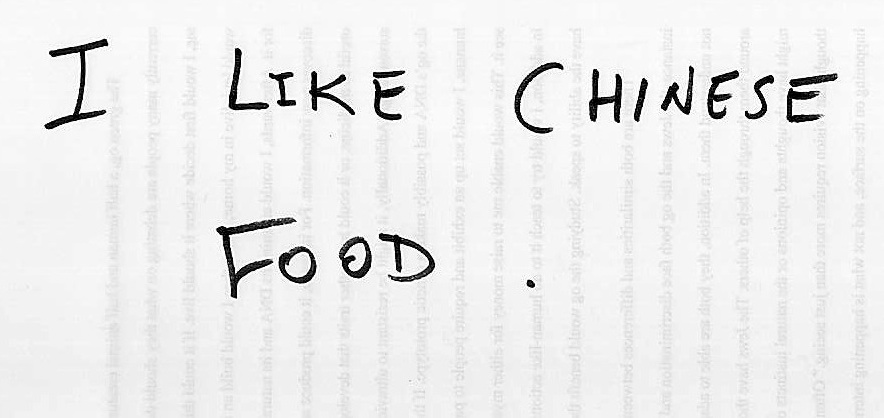 I LIKE CHINESE
FOOD .